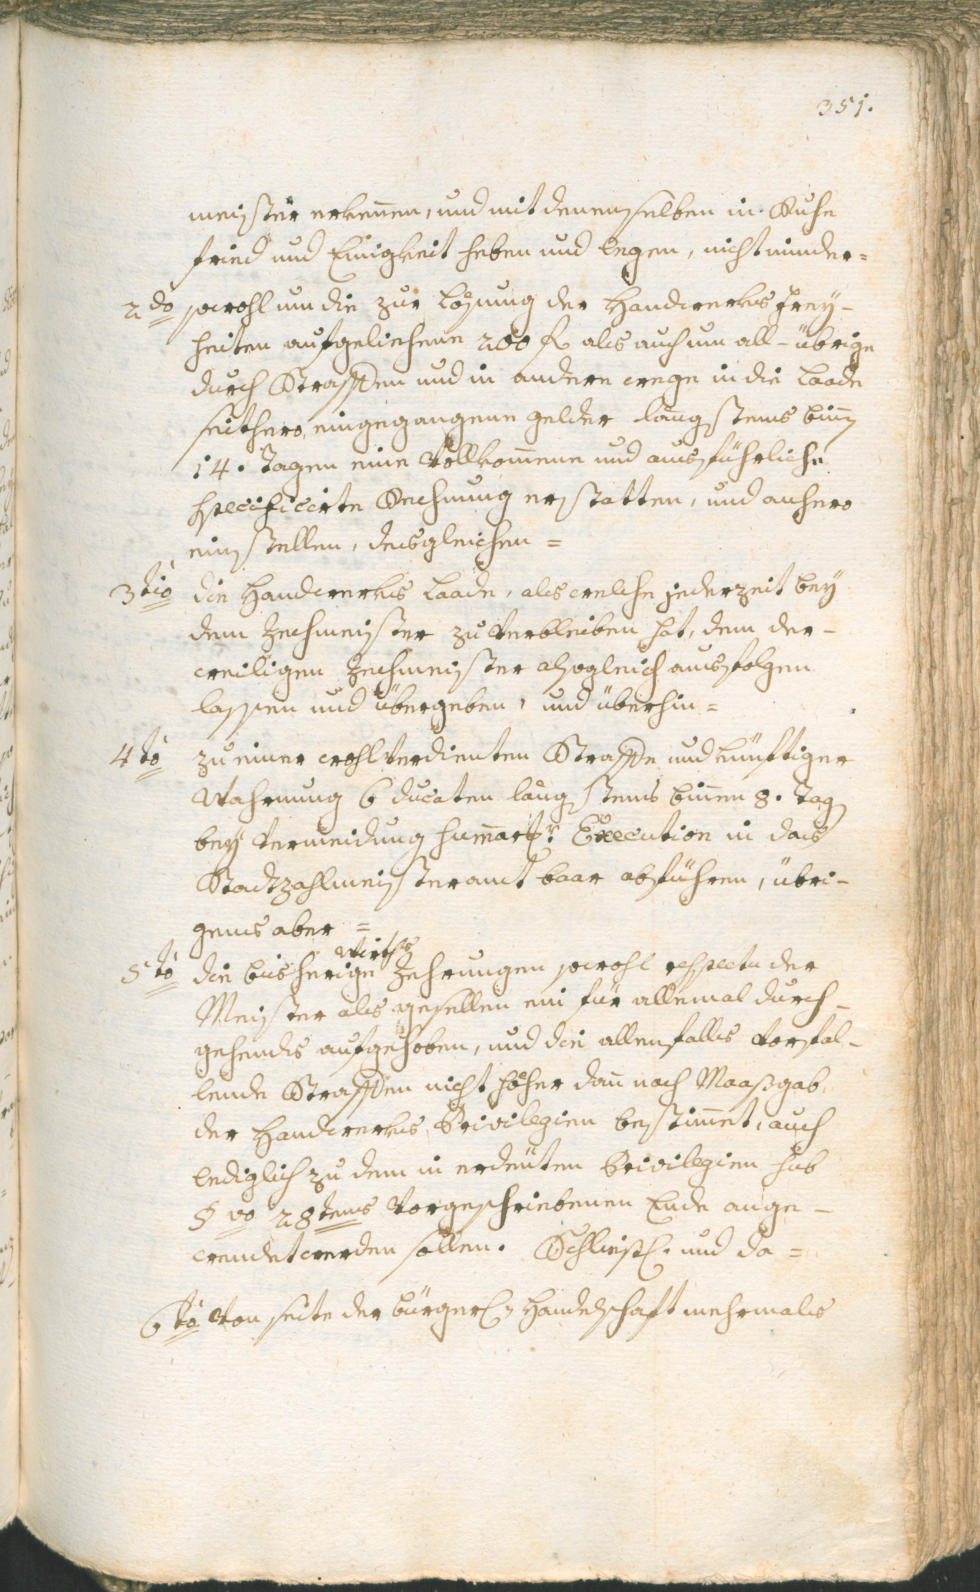 351.
meister erkennen, und mit denenselben in Ruhe
fried und Einigkeit heben und legen, nicht minder=
2do sowohl um die zur Lösung der Handwerks Frey-
heiten aufgeliehene 200 f als auch um all-übrige
durch Straffen und in andere weege in die Laade
seithero eingegangene gelder längstens binn
14. Tagen eine Vollkommene und ausführliche
specificirte Rechnung erstatten, und anhero
einstellen, desgleichen =
3tio die Handwerks Laade, als welche jederzeit bey
dem Zechmeister zu Verbleiben hat, dem der-
weiligen Zechmeister alsogleich ausfolgen
lassen und übergeben, und überhin =
4to zu einer wohl Verdienten Straffe und künftiger
Wahrnung 6 ducaten längstens binnen 8. Tag
bey Vermeidung summarr: Execution in das
Stadtzahlmeisteramt baar abführen, übri-
gens aber =
wirths
5to die bisherige Zehrungen sowohl respectu der
Meister als gesellen ein für allemal durch-
gehends aufgehoben, und die allenfalls Vorfal-
lende Straffen nicht höher dann nach Maaßgab
der Handwerks Privilegien bestimmet, auch
lediglich zu dem in erdeuten Privilegien sub
§vo 28tens Vorgeschriebenen Ende ange-
wendet werden sollen. Schliesl. und da =
6to Von seite der bürgerl Handelschaft mehrmals